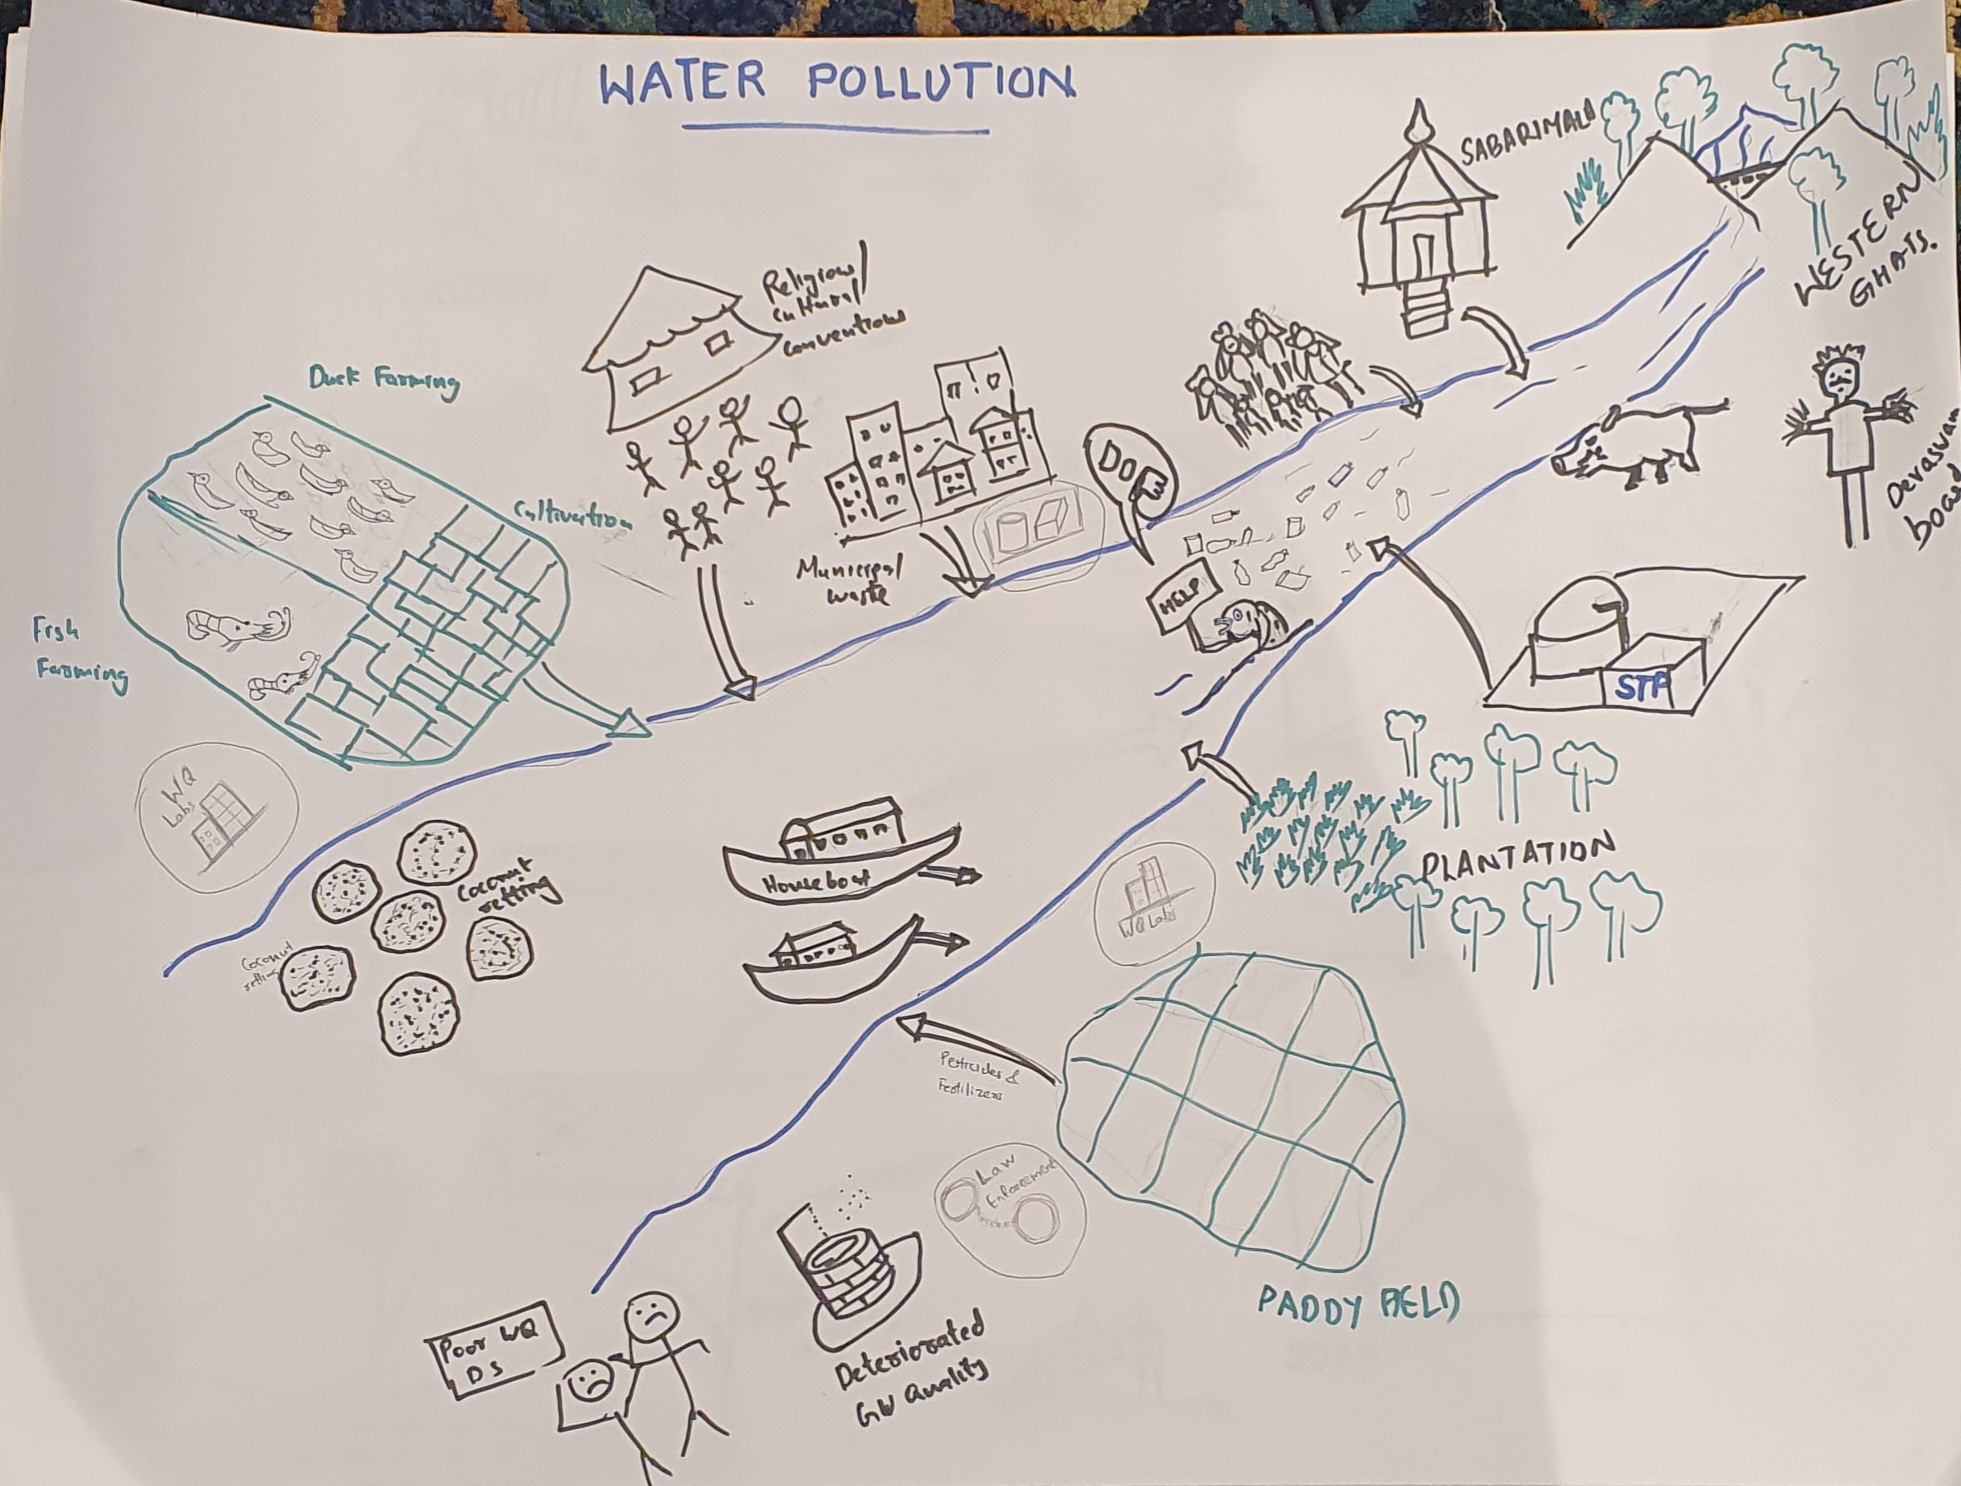 WATER POLLUTION
SABARIMALA
WESTERN
GHATS.
Religious/
cultural/
conventions
Duck Farming
Cultivation
Devaswam
board
DOE
Municipal
waste
HELP
Fish
Farming
STP
WQ
Labs
PLANTATION
Coconut
retting
Houseboat
WQ Labs
Coconut
retting
Pesticides &
Fertilizers
Law
Enforcement
PADDY FIELD
Poor WQ
DS
Deteriorated
GW Quality